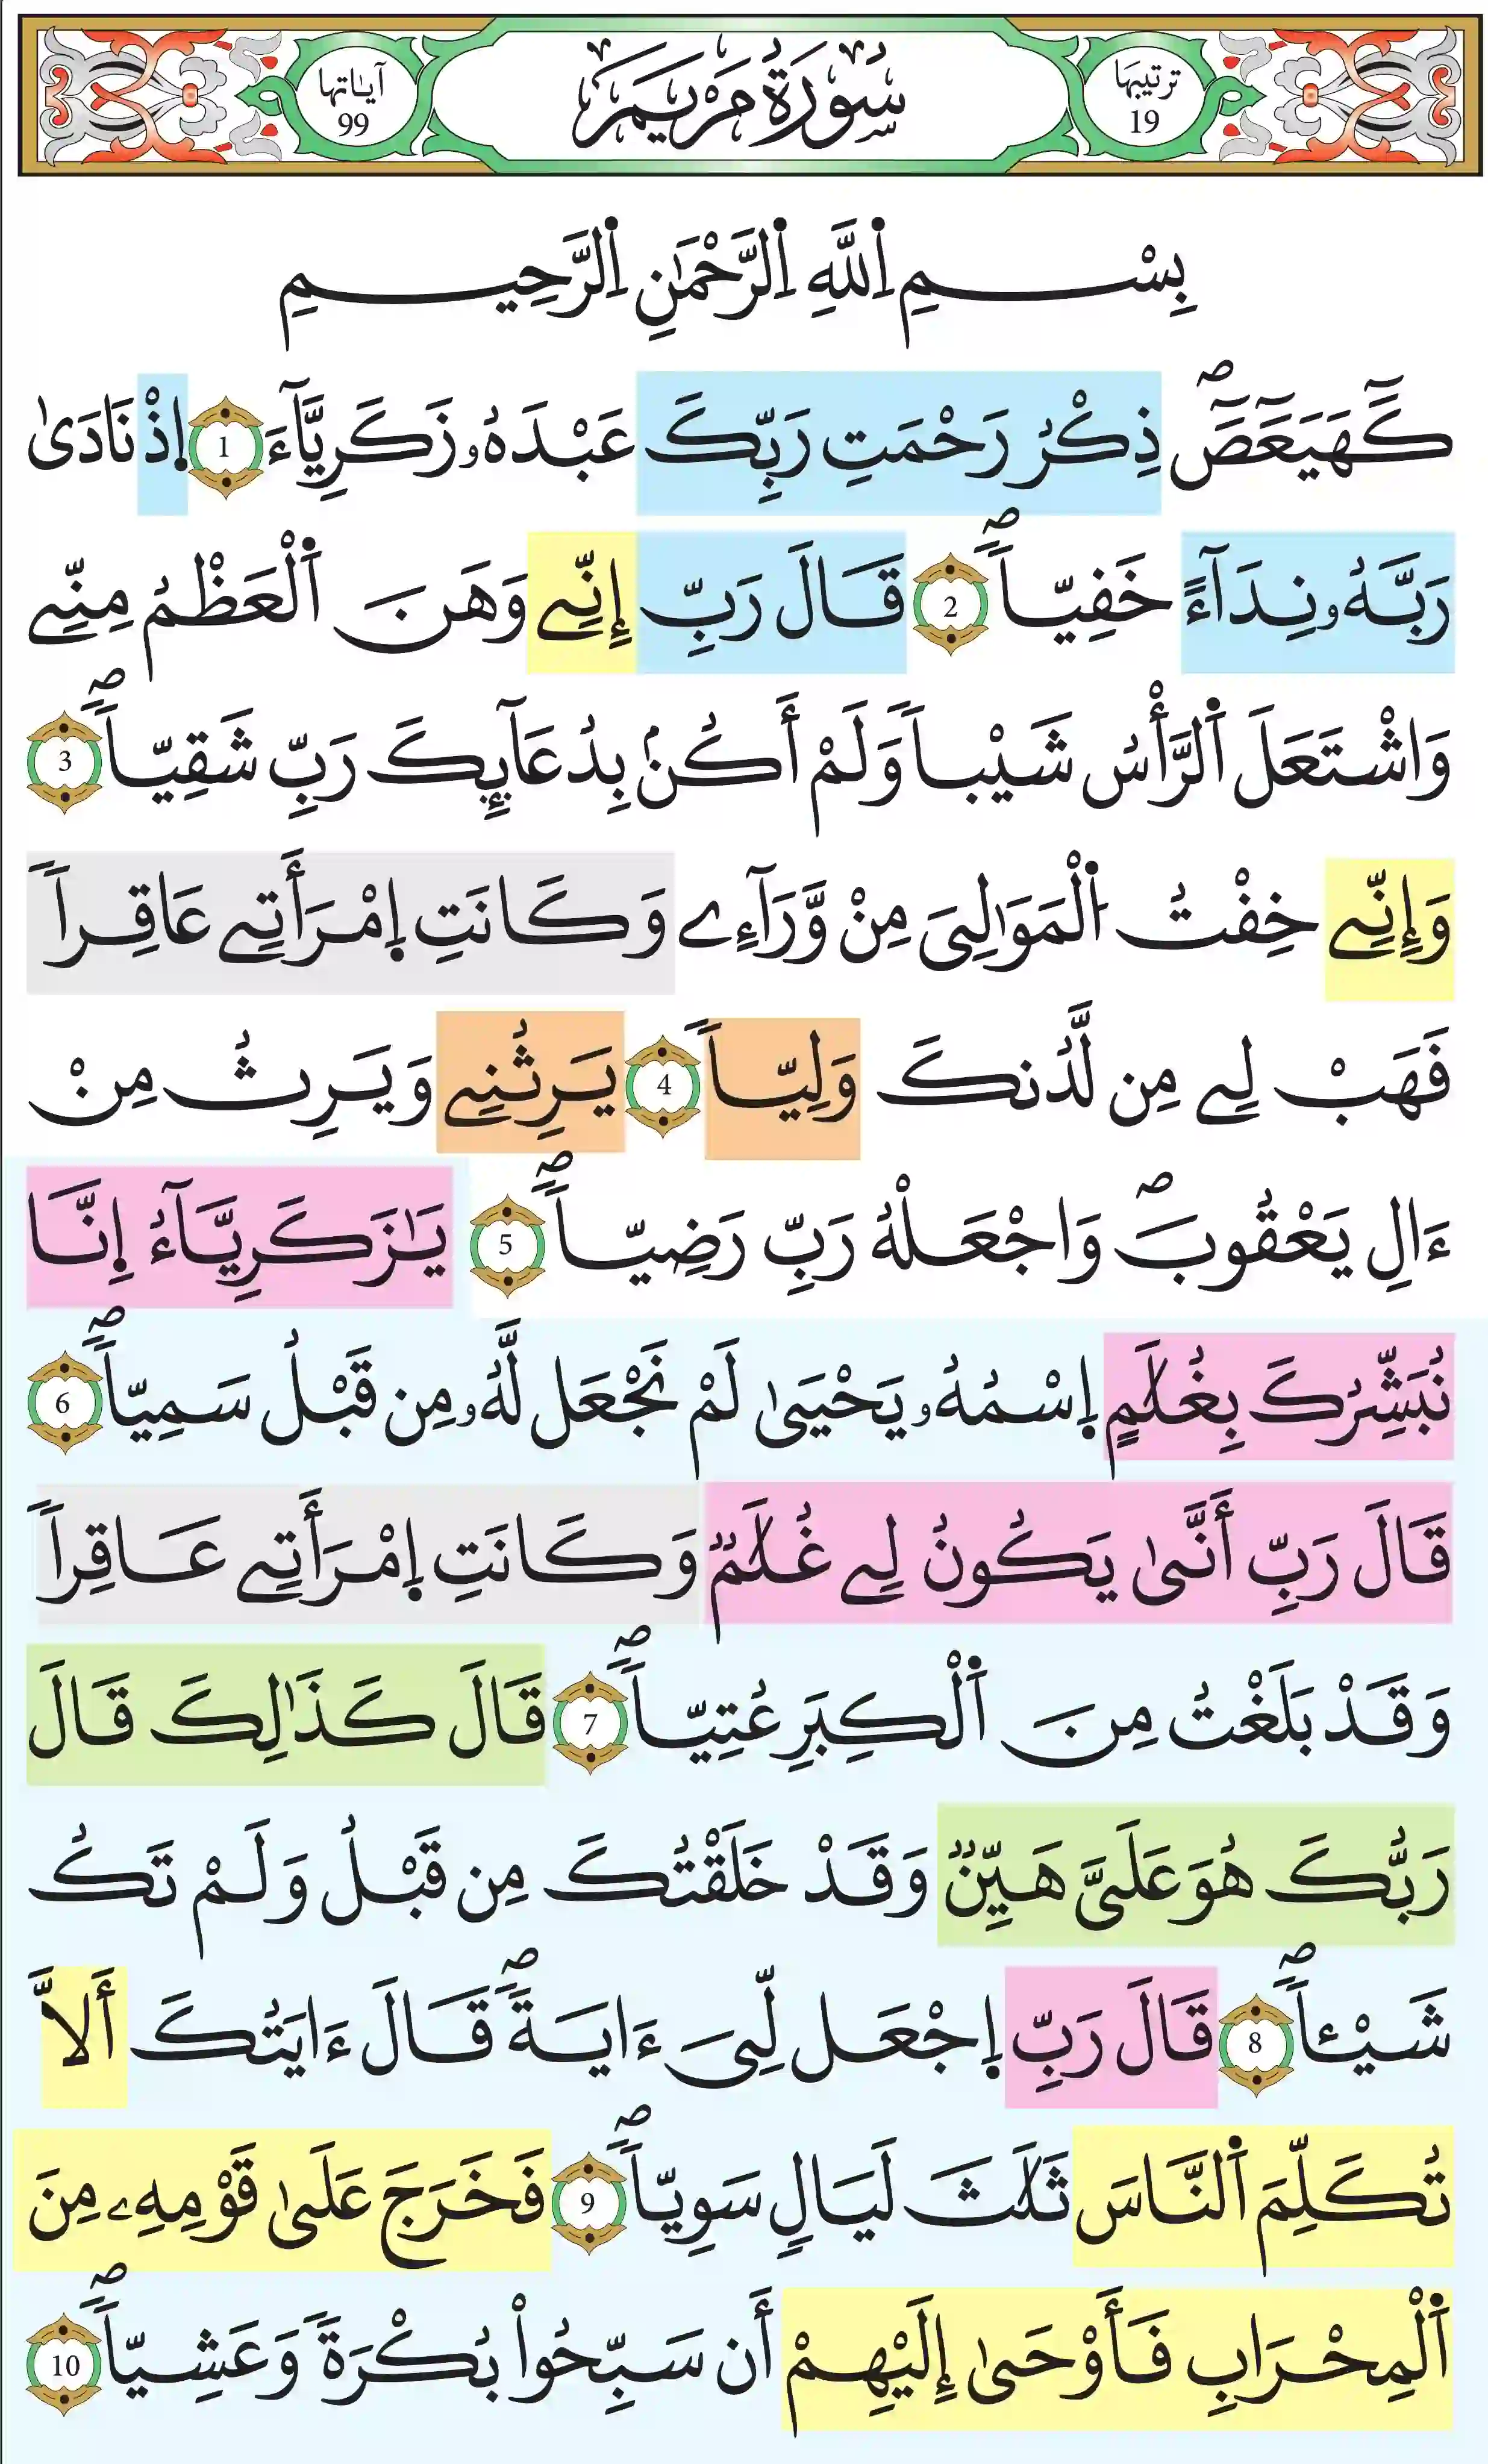 ترتيبها 19
سُورَةُ مَرْيَمَ
آياتها 99
بِسْمِ اِ۬للَّهِ اِ۬لرَّحْمَٰنِ اِ۬لرَّحِيمِ
كَٓهَيَعَٓصَٓۖ ذِكْرُ رَحْمَتِ رَبِّكَ عَبْدَهُۥ زَكَرِيَّآءَ 1 اِ۪ذْ نَادَىٰ
رَبَّهُۥ نِدَآءً خَفِيّاٗۖ 2 قَالَ رَبِّ إِنِّے وَهَنَ اَ۬لْعَظْمُ مِنِّے
وَاشْتَعَلَ اَ۬لرَّأْسُ شَيْباٗ وَلَمْ أَكُنۢ بِدُعَآئِكَ رَبِّ شَقِيّاٗۖ 3
وَإِنِّے خِفْتُ اُ۬لْمَوَٰلِيَ مِنْ وَّرَآءِے وَكَانَتِ اِ۪مْرَأَتِے عَاقِراٗ
فَهَبْ لِے مِن لَّدُنكَ وَلِيّاٗ 4 يَرِثُنِے وَيَرِثُ مِنْ
ءَالِ يَعْقُوبَۖ وَاجْعَلْهُ رَبِّ رَضِيّاٗۖ 5 يَٰزَكَرِيَّآءُ اِنَّا
نُبَشِّرُكَ بِغُلَٰمٍ اِ۪سْمُهُۥ يَحْيَىٰ لَمْ نَجْعَل لَّهُۥ مِن قَبْلُ سَمِيّاٗۖ 6
قَالَ رَبِّ أَنَّىٰ يَكُونُ لِے غُلَٰمٞ وَكَانَتِ اِ۪مْرَأَتِے عَاقِراٗ
وَقَدْ بَلَغْتُ مِنَ اَ۬لْكِبَرِ عُتِيّاٗۖ 7 قَالَ كَذَٰلِكَ قَالَ
رَبُّكَ هُوَ عَلَىَّ هَيِّنٞ وَقَدْ خَلَقْتُكَ مِن قَبْلُ وَلَمْ تَكُ
شَيْـٔاٗۖ 8 قَالَ رَبِّ اِ۪جْعَل لِّيَ ءَايَةٗۖ قَالَ ءَايَتُكَ أَلَّا
تُكَلِّمَ اَ۬لنَّاسَ ثَلَٰثَ لَيَالٍ سَوِيّاٗۖ 9 فَخَرَجَ عَلَىٰ قَوْمِهِۦ مِنَ
اَ۬لْمِحْرَابِ فَأَوْحَىٰ إِلَيْهِمْ أَن سَبِّحُواْ بُكْرَةٗ وَعَشِيّاٗۖ 10